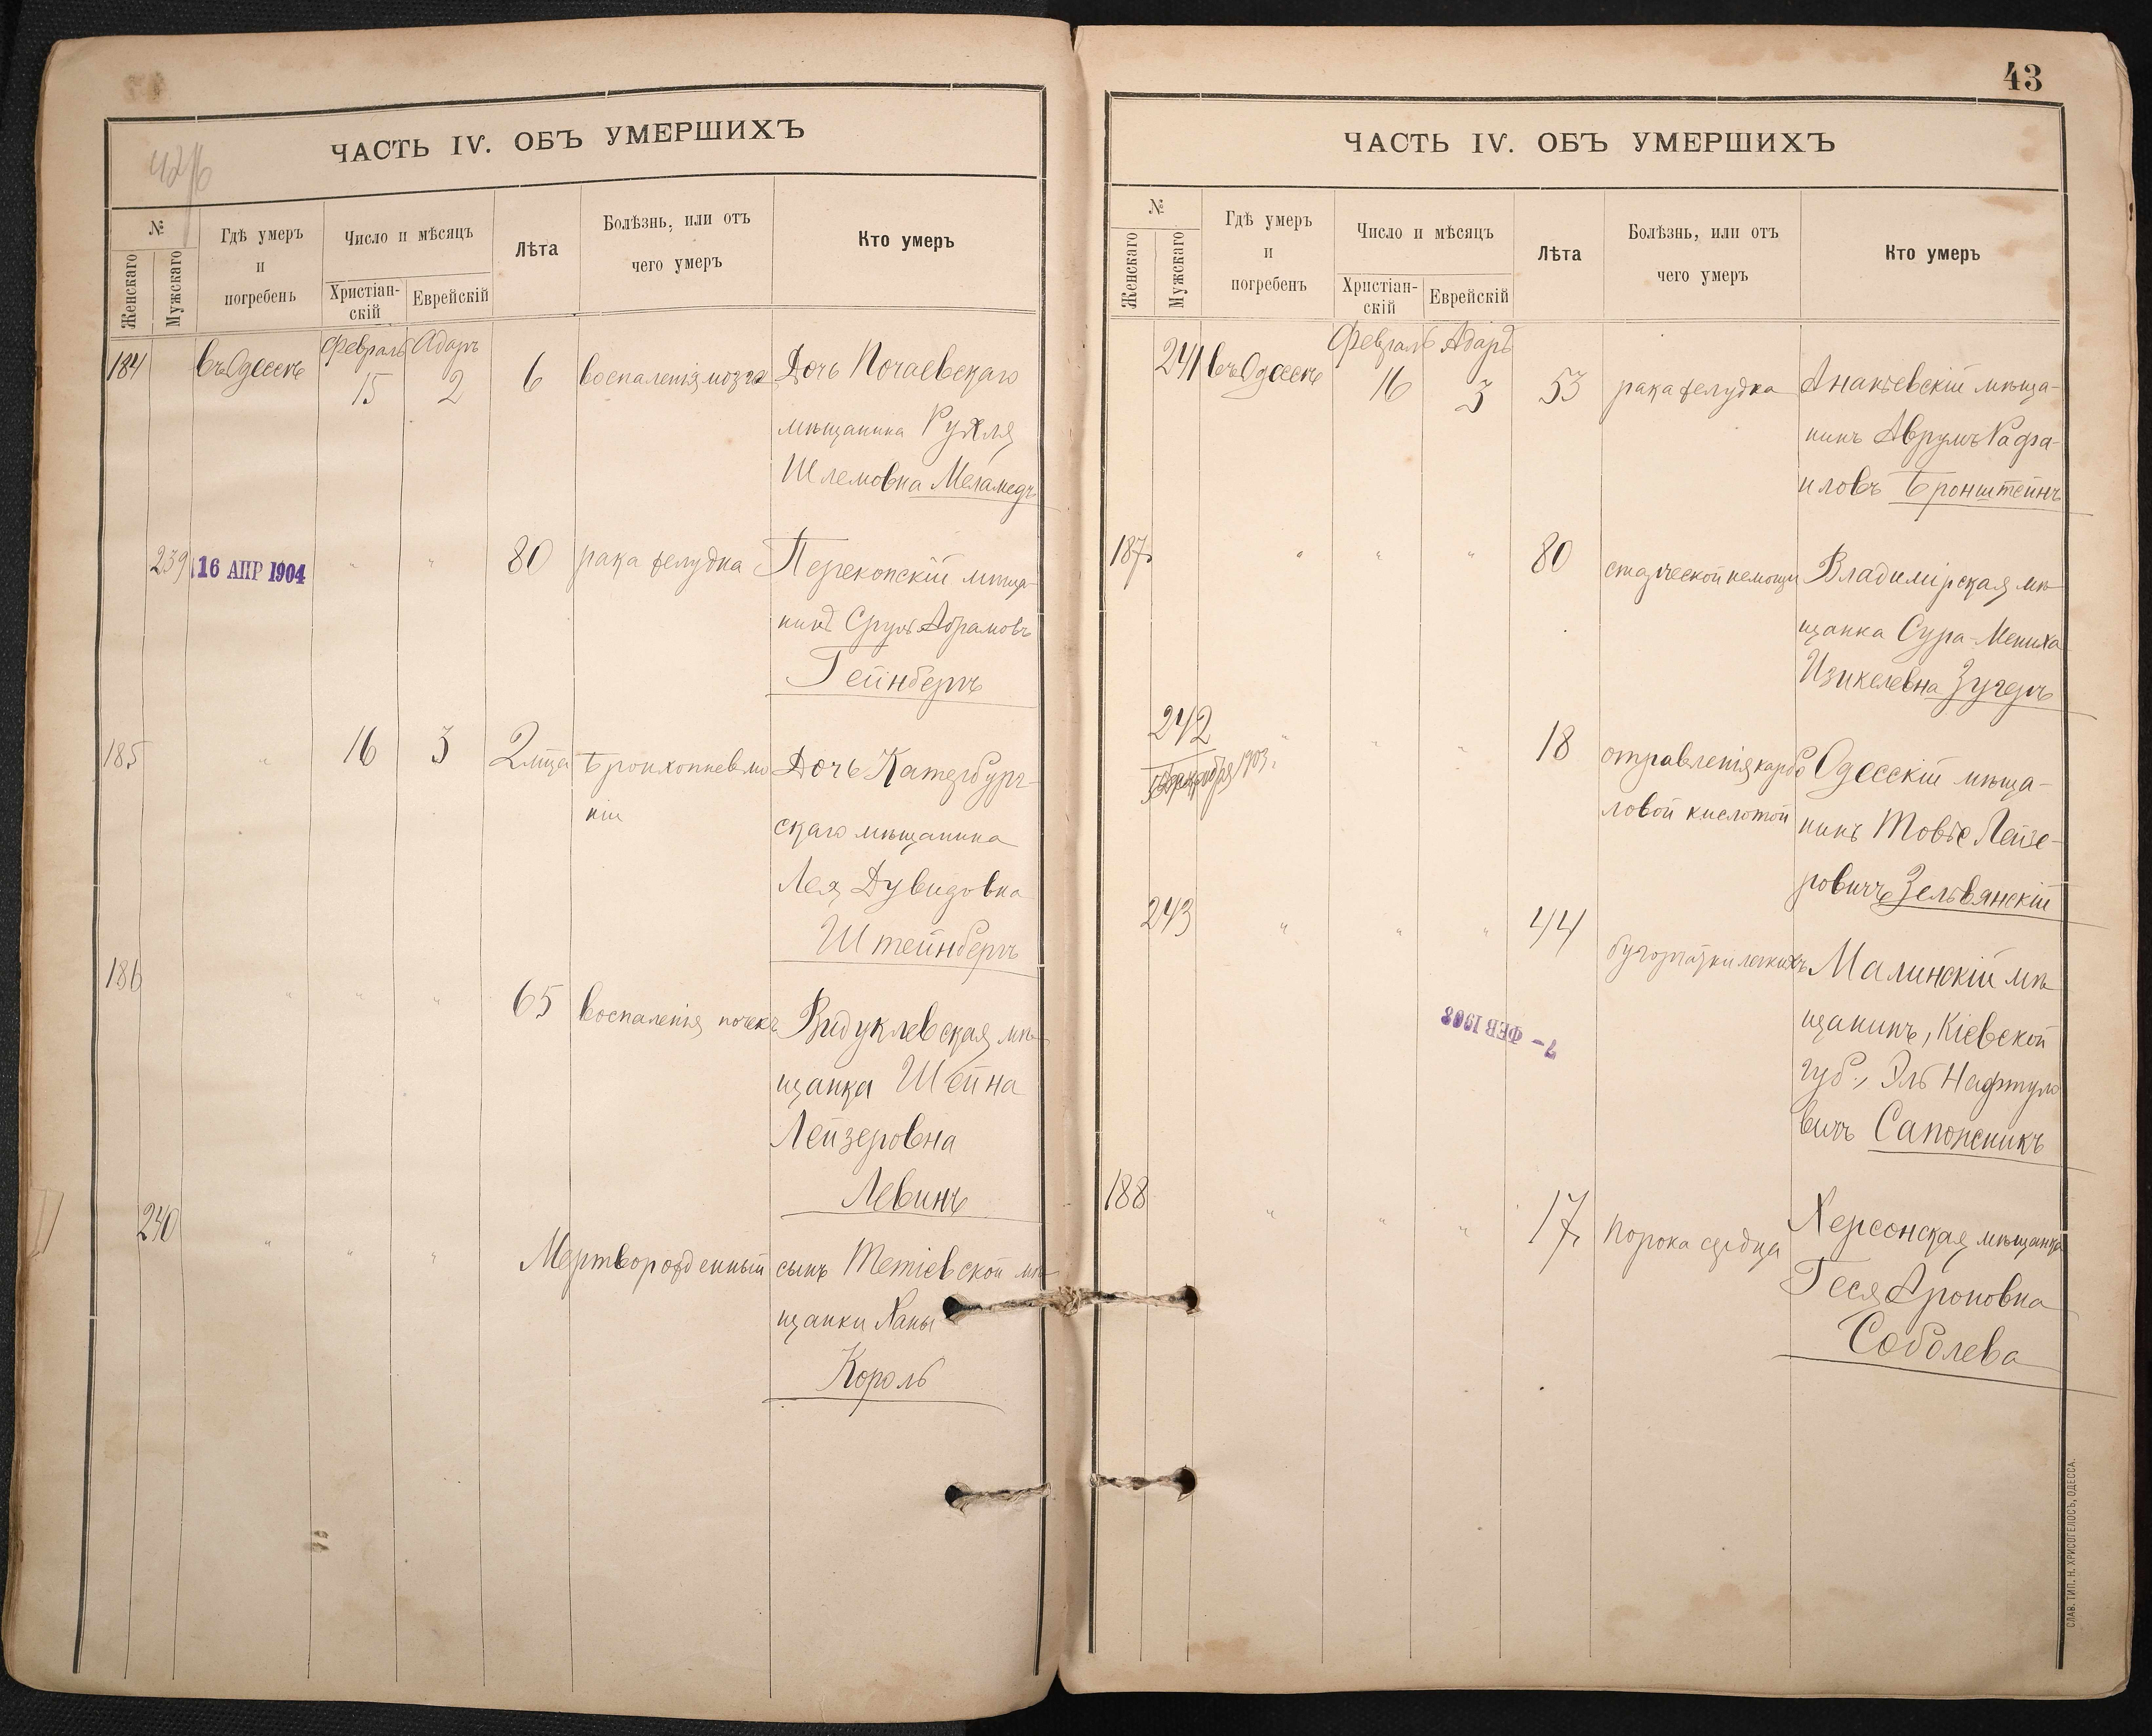 ЧАСТЬ IV. ОБЪ УМЕРШИХЪ
№
Женскаго
Мужскаго
Гдѣ умеръ
и
погребенъ
Число и мѣсяцъ
Христіан-
скій
Еврейскій
Лѣта
Болѣзнь, или отъ
чего умеръ
Кто умеръ
Февраль Адаръ
184 въ Одессѣ 15 2 6 воспаленія мозга Дочь Почаевскаго
мѣщанина Рухля
Шлемовна Меламедъ
239 16 АПР 1904 " " 80 рака желудка Перекопскій мѣща-
нинъ Сруль Абрамовъ
Гейнбергъ
185 " 16 3 2 мѣца Бронхопневмо Дочь Катербург-
ніи
скаго мѣщанина
Лея Дувидовна
Штейнбергъ
186 " " " 65 воспаленія почекъ Видуклевская мѣ-
щанка Шейна
Лейзеровна
Левинъ
240 " " " Мертворожденный сынъ Тетіевской мѣ-
щанки Ханы
Король
43
ЧАСТЬ IV. ОБЪ УМЕРШИХЪ
№
Женскаго
Мужскаго
Гдѣ умеръ
и
погребенъ
Число и мѣсяцъ
Христіан-
скій
Еврейскій
Лѣта
Болѣзнь, или отъ
чего умеръ
Кто умеръ
Февраль Адаръ
241 въ Одессѣ 16 3 53 рака желудка Ананьевскій мѣща-
нинъ Аврумъ Рафа-
иловъ Бронштейнъ
187 " " " 80 старческой немощи Владимірская мѣ
щанка Сура-Мениха
Изикелевна Зугеръ
242 " " " 18 отравленія карбо Одесскій мѣща-
декабря 1903 г.
ловой кислотой нинъ Товіе Лейзе-
ровичъ Зельвянскій
243 " " " 44 бугорчатки легкихъ Малинскій мѣ
щанинъ, Кіевской
губ., Эль Нафтуло
вичъ Сапожникъ
7- ФЕВ 1908
188 " " " 17 порока сердца Херсонская мѣщанка
Геся Ароновна
Соболева
СЛАВ. ТИП. Н. ХРИСОГЕЛОСЪ, ОДЕССА.